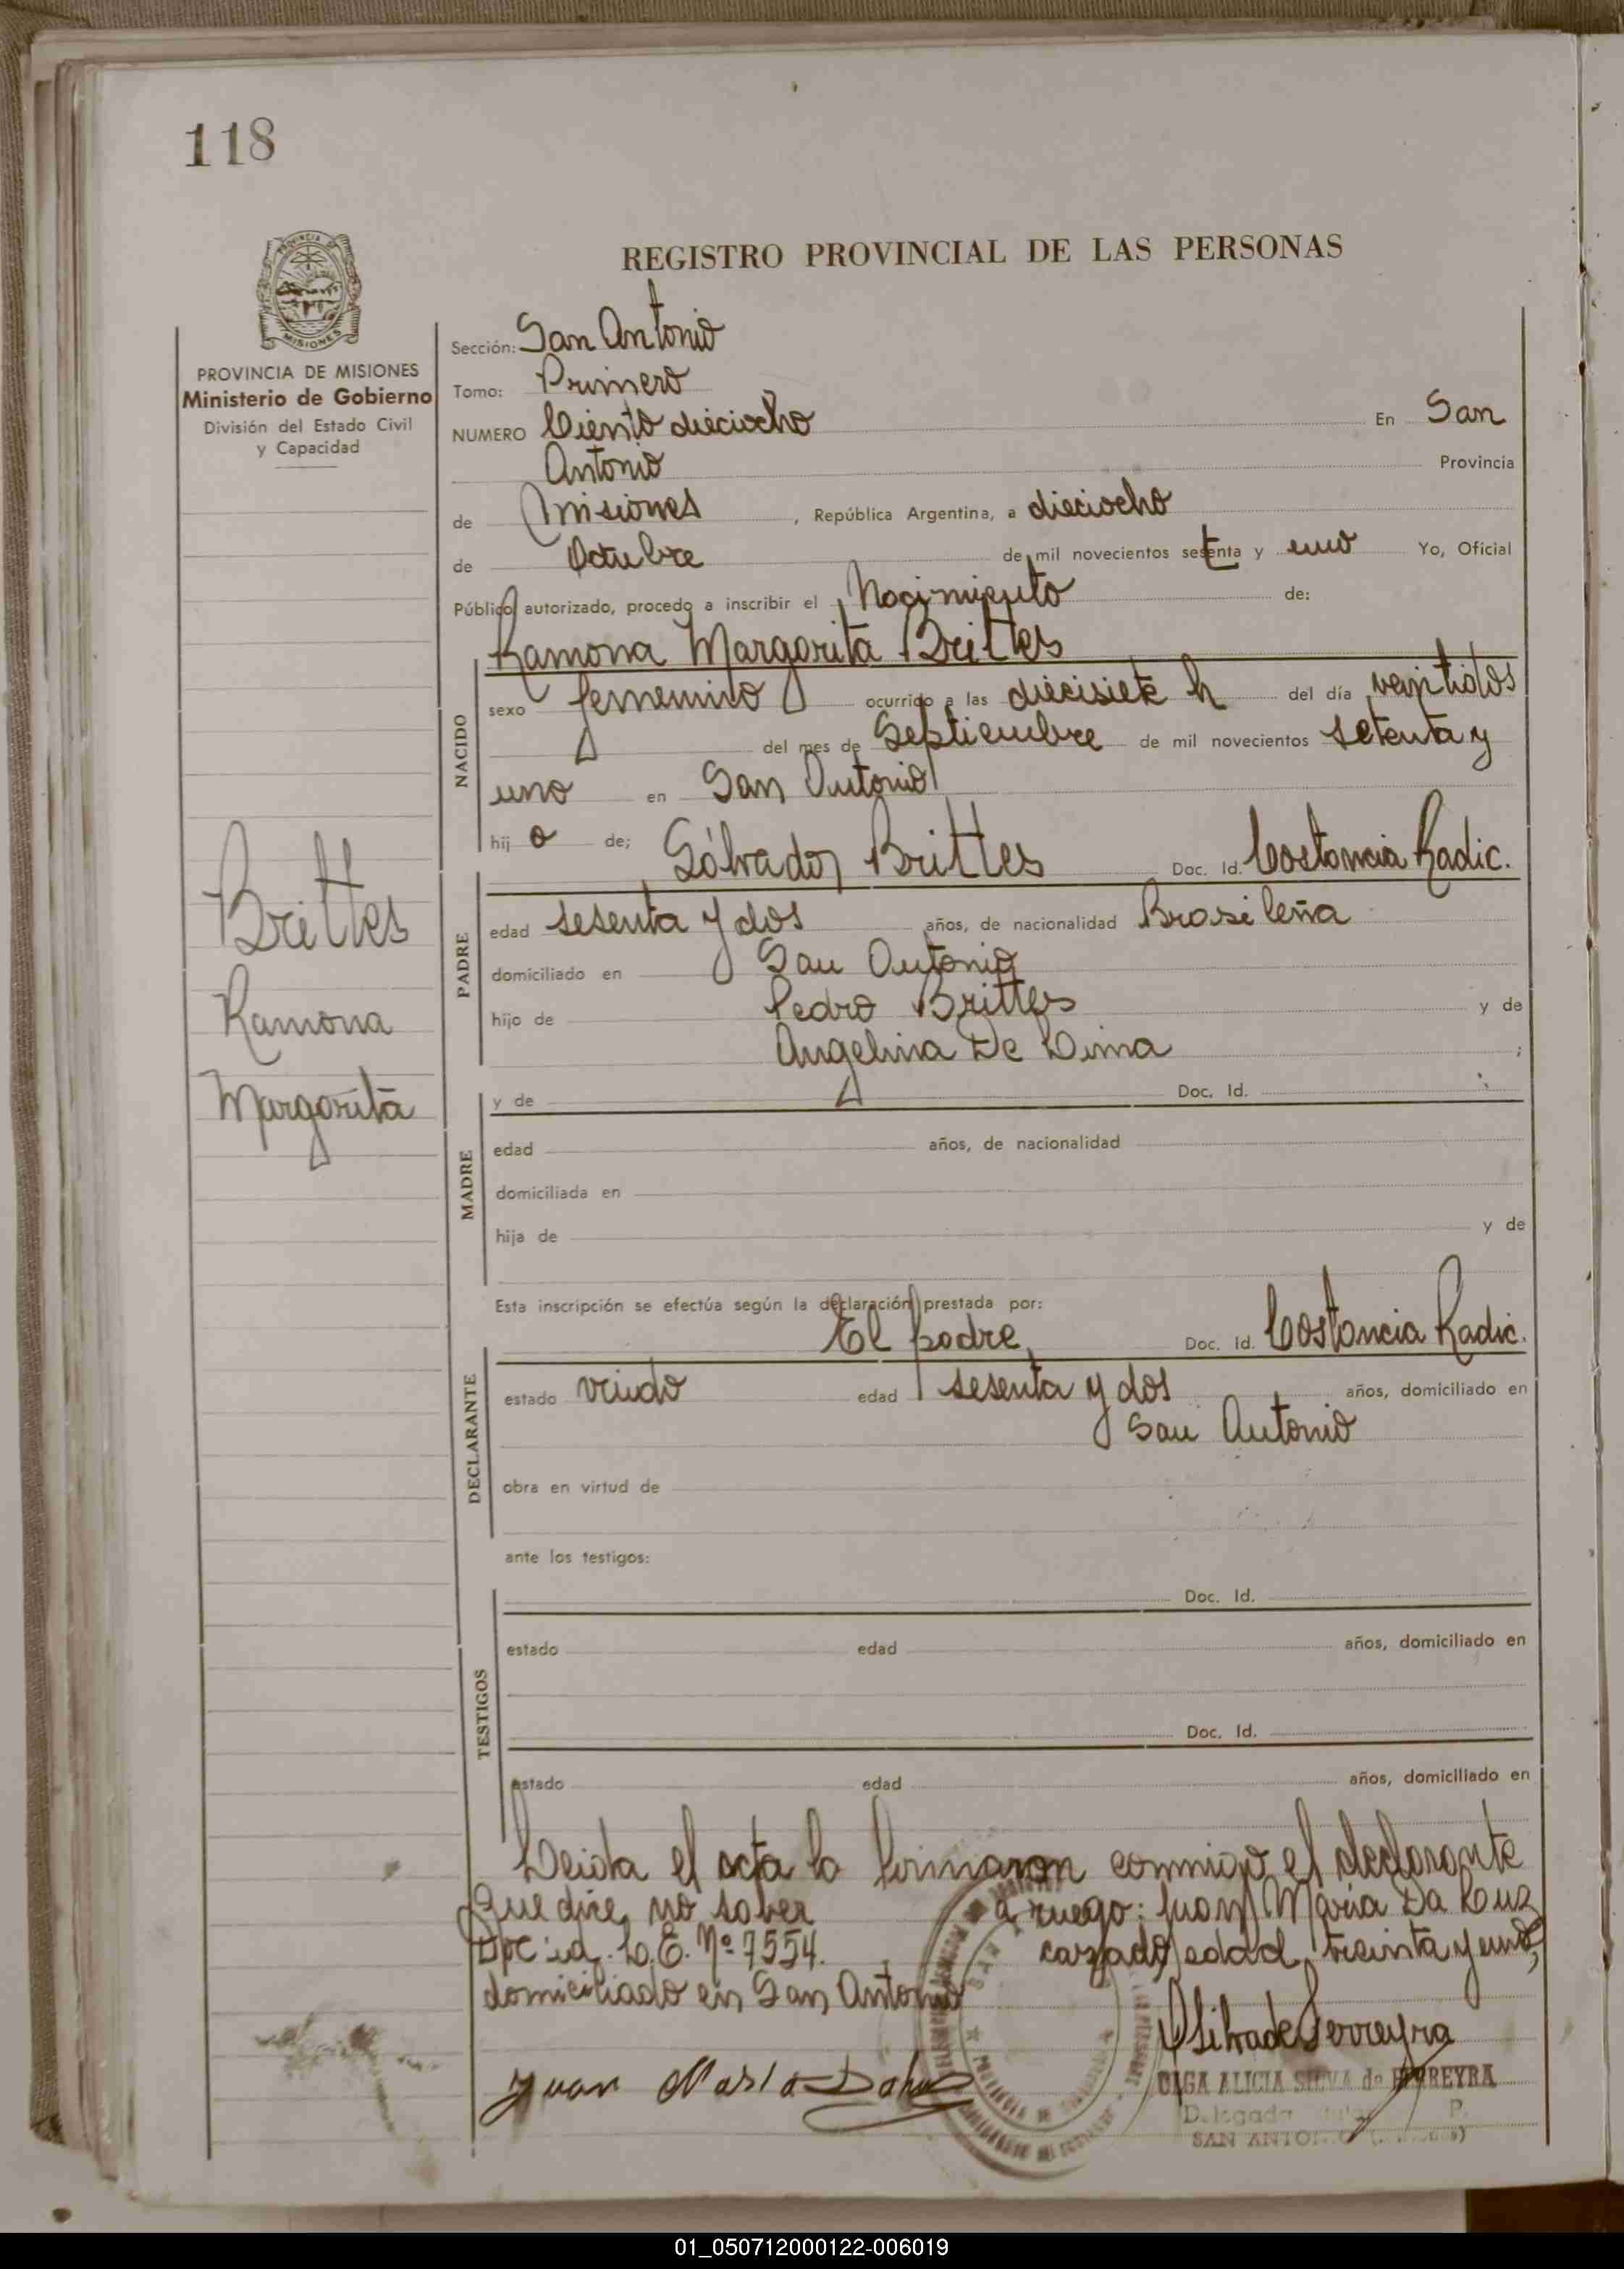 118
REGISTRO PROVINCIAL DE LAS PERSONAS
PROVINCIA DE MISIONES
Ministerio de Gobierno
División del Estado Civil
y Capacidad
Sección: San Antonio
Tomo: Primero
NUMERO Ciento dieciocho En San
Antonio Provincia
de Misiones, República Argentina, a dieciocho
de Octubre de mil novecientos setenta y uno Yo, Oficial
Público autorizado, procedo a inscribir el Nacimiento de:
Ramona Margarita Brittes
NACIDO
sexo femenino ocurrido a las diecisiete h del día veintidos
del mes de Septiembre de mil novecientos setenta y
uno en San Antonio
hij a de;
Sálvador Brittes Doc. Id. Costancia Radic.
PADRE
edad sesenta y dos años, de nacionalidad Brasileña
domiciliado en San Antonio
hijo de Pedro Brittes y de
Angelina De Lima ;
y de Doc. Id.
MADRE
edad años, de nacionalidad
domiciliada en
hija de y de
Brittes
Ramona
Margarita
Esta inscripción se efectúa según la declaración prestada por:
El padre Doc. Id. Costancia Radic.
DECLARANTE
estado viudo edad sesenta y dos años, domiciliado en
San Antonio
obra en virtud de
ante los testigos:
Doc. Id.
TESTIGOS
estado edad años, domiciliado en
Doc. Id.
estado edad años, domiciliado en
Leida el acta la firmaron conmigo el declarante
que dice no saber a ruego: Juan María Da Luz
Doc id. L.E. Nº 7554. casado edad treinta y uno,
domiciliado en San Antonio
OSilvadeFerreyra
Juan Maria Da Luz
OLGA ALICIA SILVA de FERREYRA
Delegada Titular P.
SAN ANTONIO (Misiones)
01_050712000122-006019